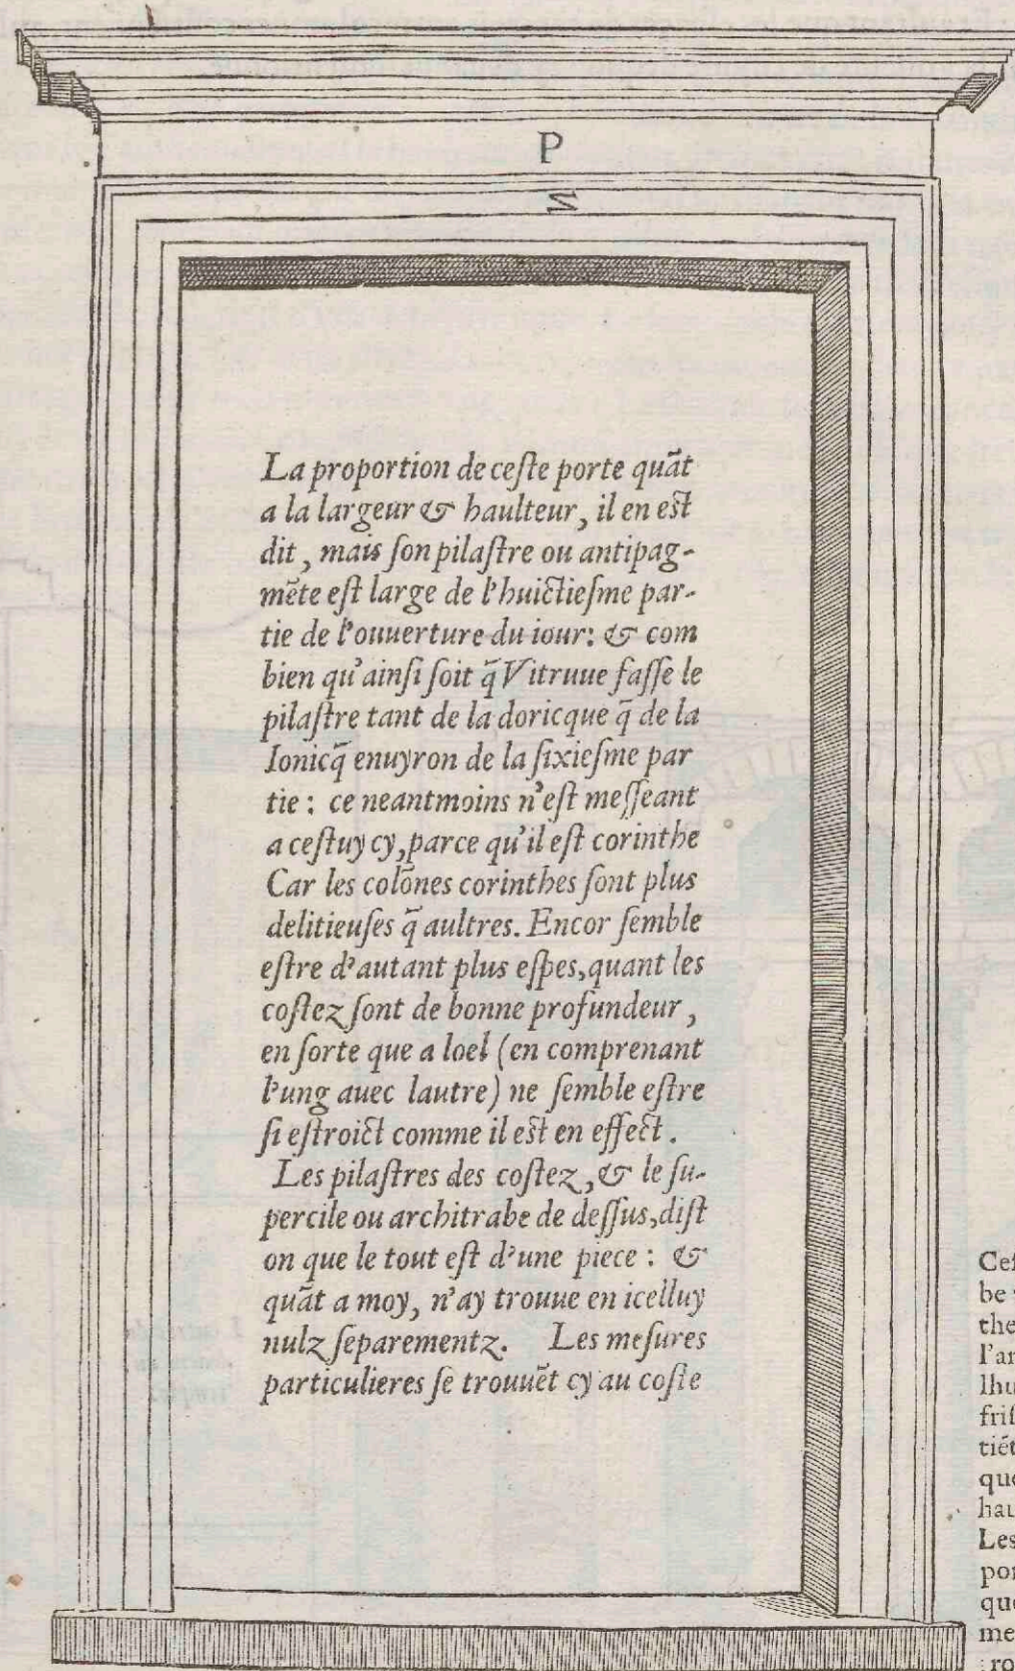 P
N
La proportion de ceſte porte quāt
a la largeur & haulteur, il en eſt
dit, mais ſon pilaſtre ou antipag-
mēte eſt large de l'huictieſme par-
tie de l'ouuerture du iour: & com
bien qu'ainſi ſoit q̄ Vitruue faſſe le
pilaſtre tant de la doricque q̄ de la
Ionicq̄ enuyron de la ſixieſme par
tie: ce neantmoins n'eſt meſſeant
a ceſtuy cy, parce qu'il eſt corinthe
Car les colōnes corinthes ſont plus
delitieuſes q̄ aultres. Encor ſemble
eſtre d'autant plus eſpes, quant les
coſtez ſont de bonne profundeur,
en ſorte que a loel (en comprenant
l'ung auec lautre) ne ſemble eſtre
ſi eſtroict comme il eſt en effect.
Les pilaſtres des coſtez, & le ſu-
percile ou architrabe de deſſus, diſt
on que le tout eſt d'une piece: &
quāt a moy, n'ay trouue en icelluy
nulz ſeparementz. Les meſures
particulieres ſe trouuēt cy au coſte
Ceſ
be
the
l'ar
lhu
friſ
tiét
que
hau
Les
por
que
me
ro